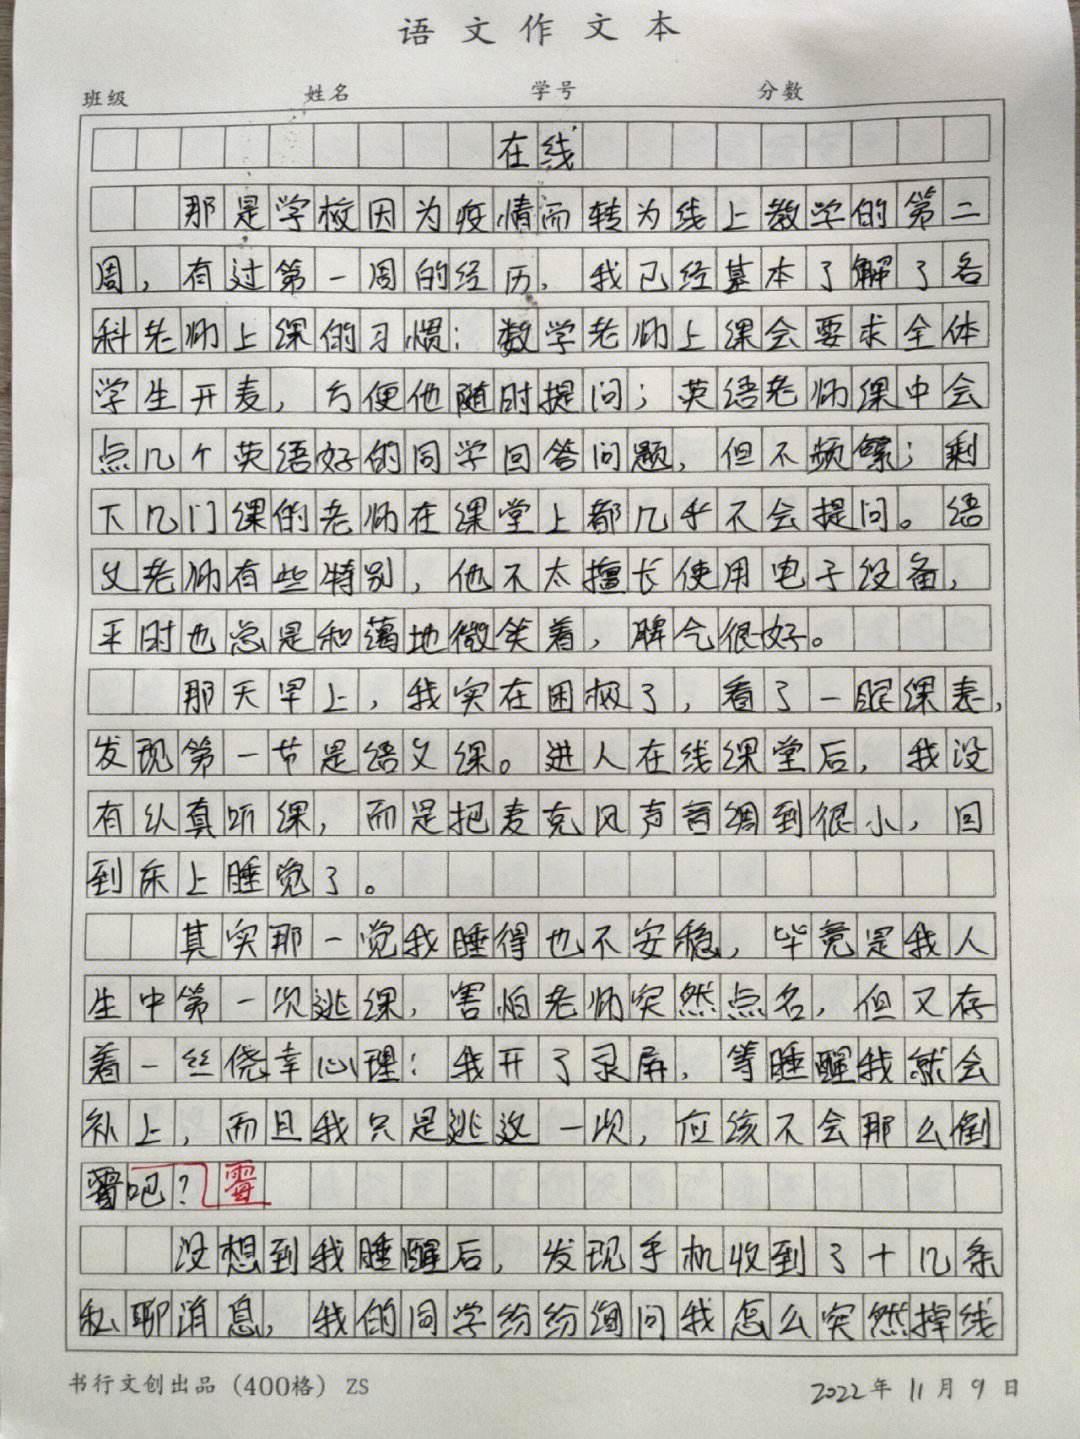 语文作文本
班级 姓名 学号 分数
在线
那是学校因为疫情而转为线上教学的第二
周，有过第一周的经历，我已经基本了解了各
科老师上课的习惯：数学老师上课会要求全体
学生开麦，方便他随时提问；英语老师课中会
点几个英语好的同学回答问题，但不频繁；剩
下几门课的老师在课堂上都几乎不会提问。语
文老师有些特别，他不太擅长使用电子设备，
平时也总是和蔼地微笑着，脾气很好。
那天早上，我实在困极了，看了一眼课表，
发现第一节是语文课。进入在线课堂后，我没
有认真听课，而是把麦克风声音调到很小，回
到床上睡觉了。
其实那一觉我睡得也不安稳，毕竟是我人
生中第一次逃课，害怕老师突然点名，但又存
着一丝侥幸心理：我开了录屏，等睡醒我就会
补上，而且我只是逃这一次，应该不会那么倒
霉吧？霉
没想到我睡醒后，发现手机收到了十几条
私聊消息，我的同学纷纷询问我怎么突然掉线
书行文创出品（400格）ZS 2022年11月9日